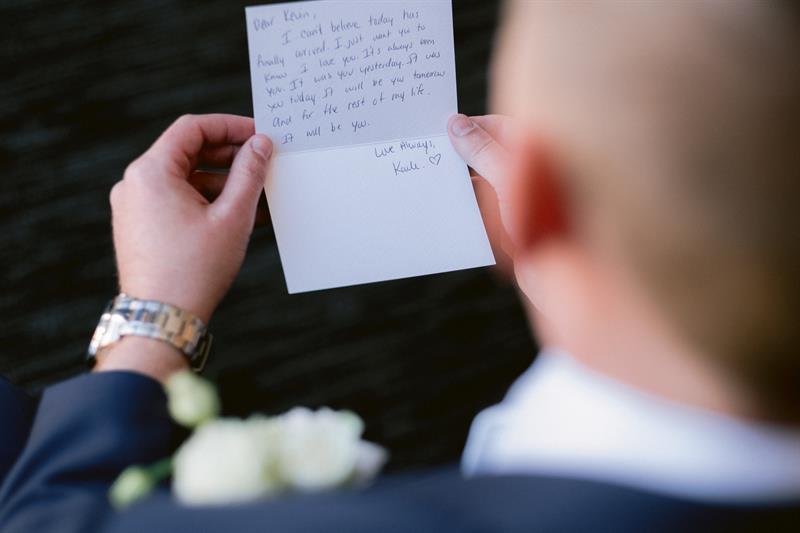 Dear Kevin,
I can't believe today has
finally arrived. I just want you to
know I love you. It's always been
you. It was you yesterday. It was
you today. It will be you tomorrow
and for the rest of my life.
It will be you.
Love Always,
♡